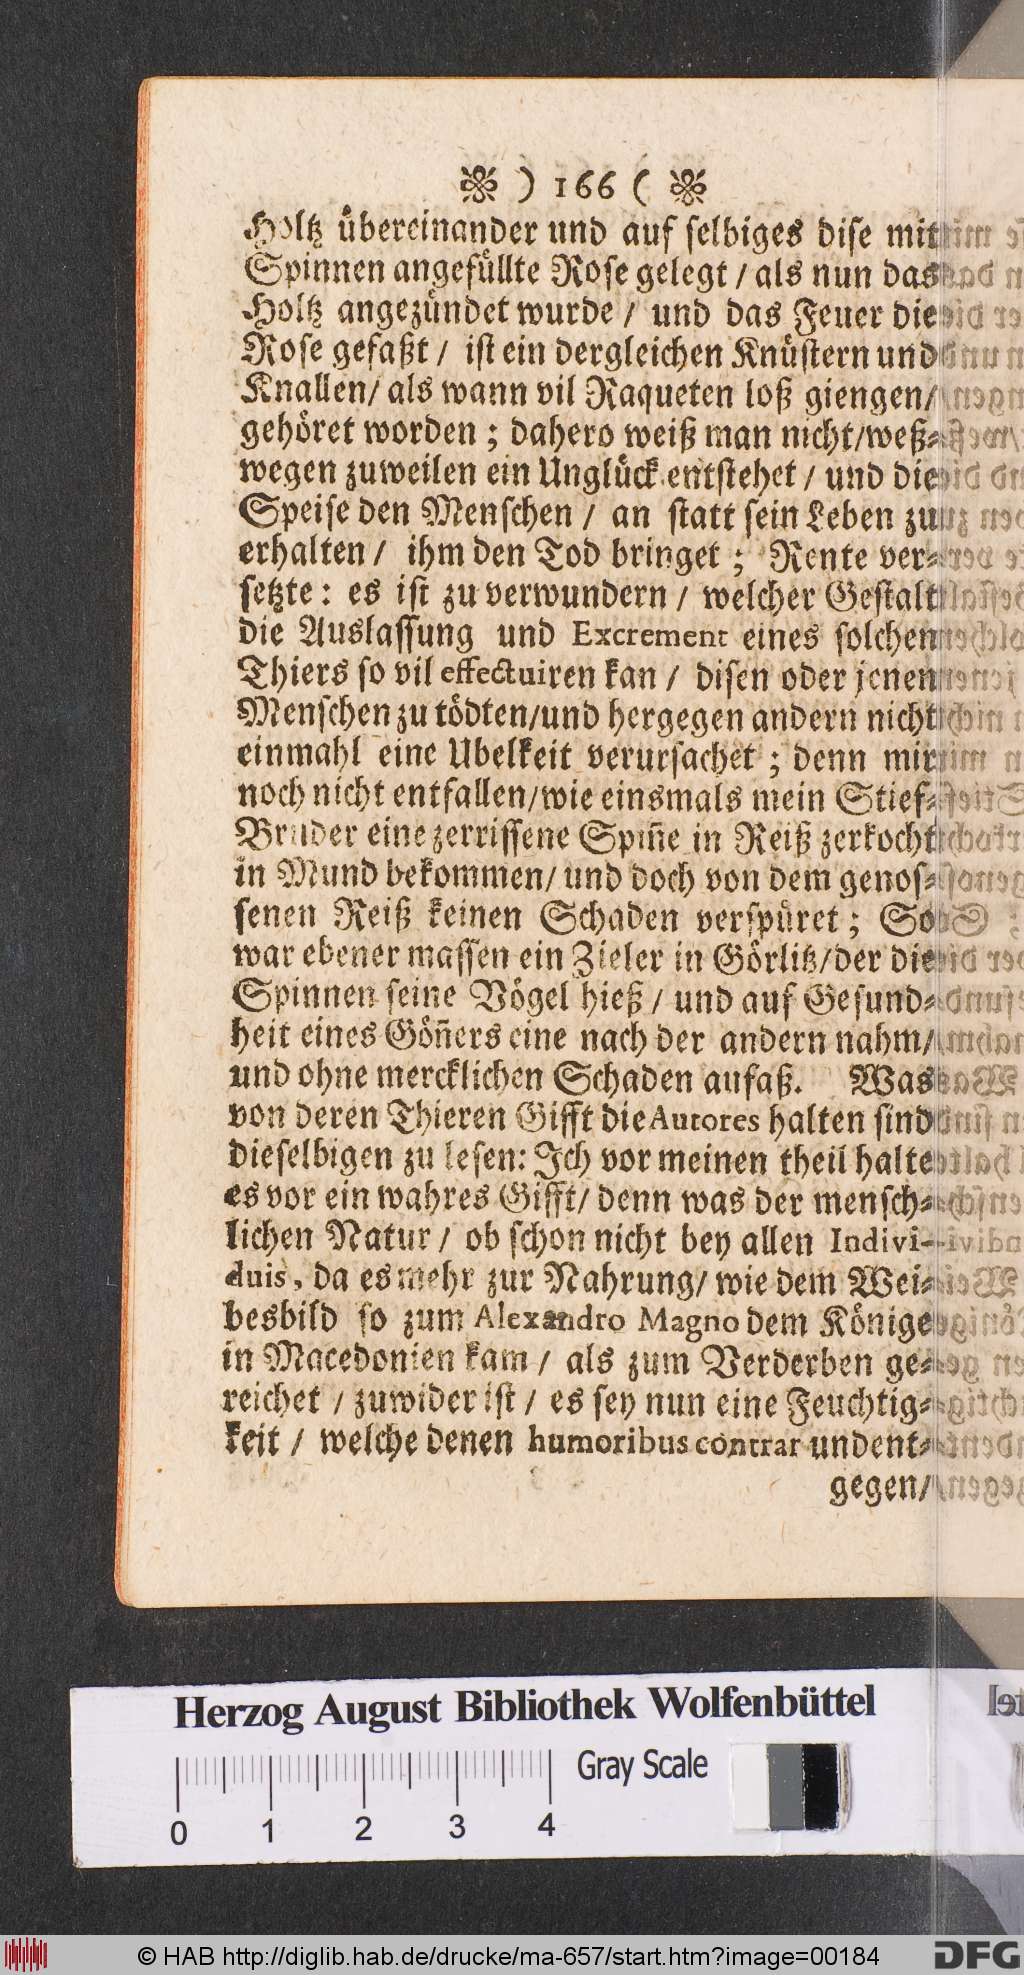 ❀ ) 166 ( ❀
Holtz uͤbereinander und auf ſelbiges diſe mit
Spinnen angefuͤllte Roſe gelegt / als nun das
Holtz angezuͤndet wurde / und das Feuer die
Roſe gefaßt / iſt ein dergleichen Knuͤſtern und
Knallen / als wann vil Raqueten loß giengen /
gehoͤret worden ; dahero weiß man nicht / weß⸗
wegen zuweilen ein Ungluͤck entſtehet / und die
Speiſe den Menſchen / an ſtatt ſein Leben zu
erhalten / ihm den Tod bringet ; Rente ver⸗
ſetzte : es iſt zu verwundern / welcher Geſtalt
die Auslaſſung und Excrement eines ſolchen
Thiers ſo vil effectuiren kan / diſen oder jenen
Menſchen zu toͤdten / und hergegen andern nicht
einmahl eine Ubelkeit verurſachet ; denn mir
noch nicht entfallen / wie einsmals mein Stief⸗
Bruder eine zerriſſene Spiñe in Reiß zerkocht
in Mund bekommen / und doch von dem genoſ⸗
ſenen Reiß keinen Schaden verſpuͤret ; So
war ebener maſſen ein Zieler in Goͤrlitz / der die
Spinnen ſeine Voͤgel hieß / und auf Geſund⸗
heit eines Goͤñers eine nach der andern nahm /
und ohne mercklichen Schaden aufaß. Was
von deren Thieren Gifft die Autores halten ſind
dieſelbigen zu leſen: Ich vor meinen theil halte
es vor ein wahres Gifft / denn was der menſch⸗
lichen Natur / ob ſchon nicht bey allen Indivi-
duis, da es mehr zur Nahrung / wie dem Wei⸗
besbild ſo zum Alexandro Magno dem Koͤnige
in Macedonien kam / als zum Verderben ge⸗
reichet / zuwider iſt / es ſey nun eine Feuchtig⸗
keit / welche denen humoribus contrar und ent⸗
gegen /
Herzog August Bibliothek Wolfenbüttel
0 1 2 3 4 Gray Scale
© HAB http://diglib.hab.de/drucke/ma-657/start.htm?image=00184 DFG